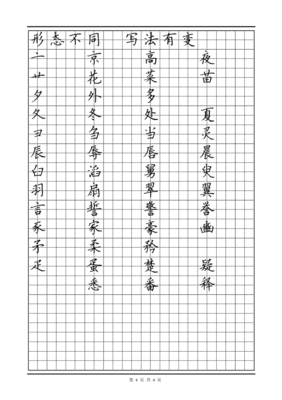 形态不同 写法有变
亠 京 高 夜
艹 花 菜 苗
夕 外 多
夂 冬 处 夏
彐 刍 当 灵
辰 辱 唇 晨
臼 滔 舅 臾
羽 扇 翠 翼
言 誓 警 誉
豕 家 豪 豳
矛 柔 矜
疋 蛋 楚 疑
悉 番 释
第 4 页 共 4 页